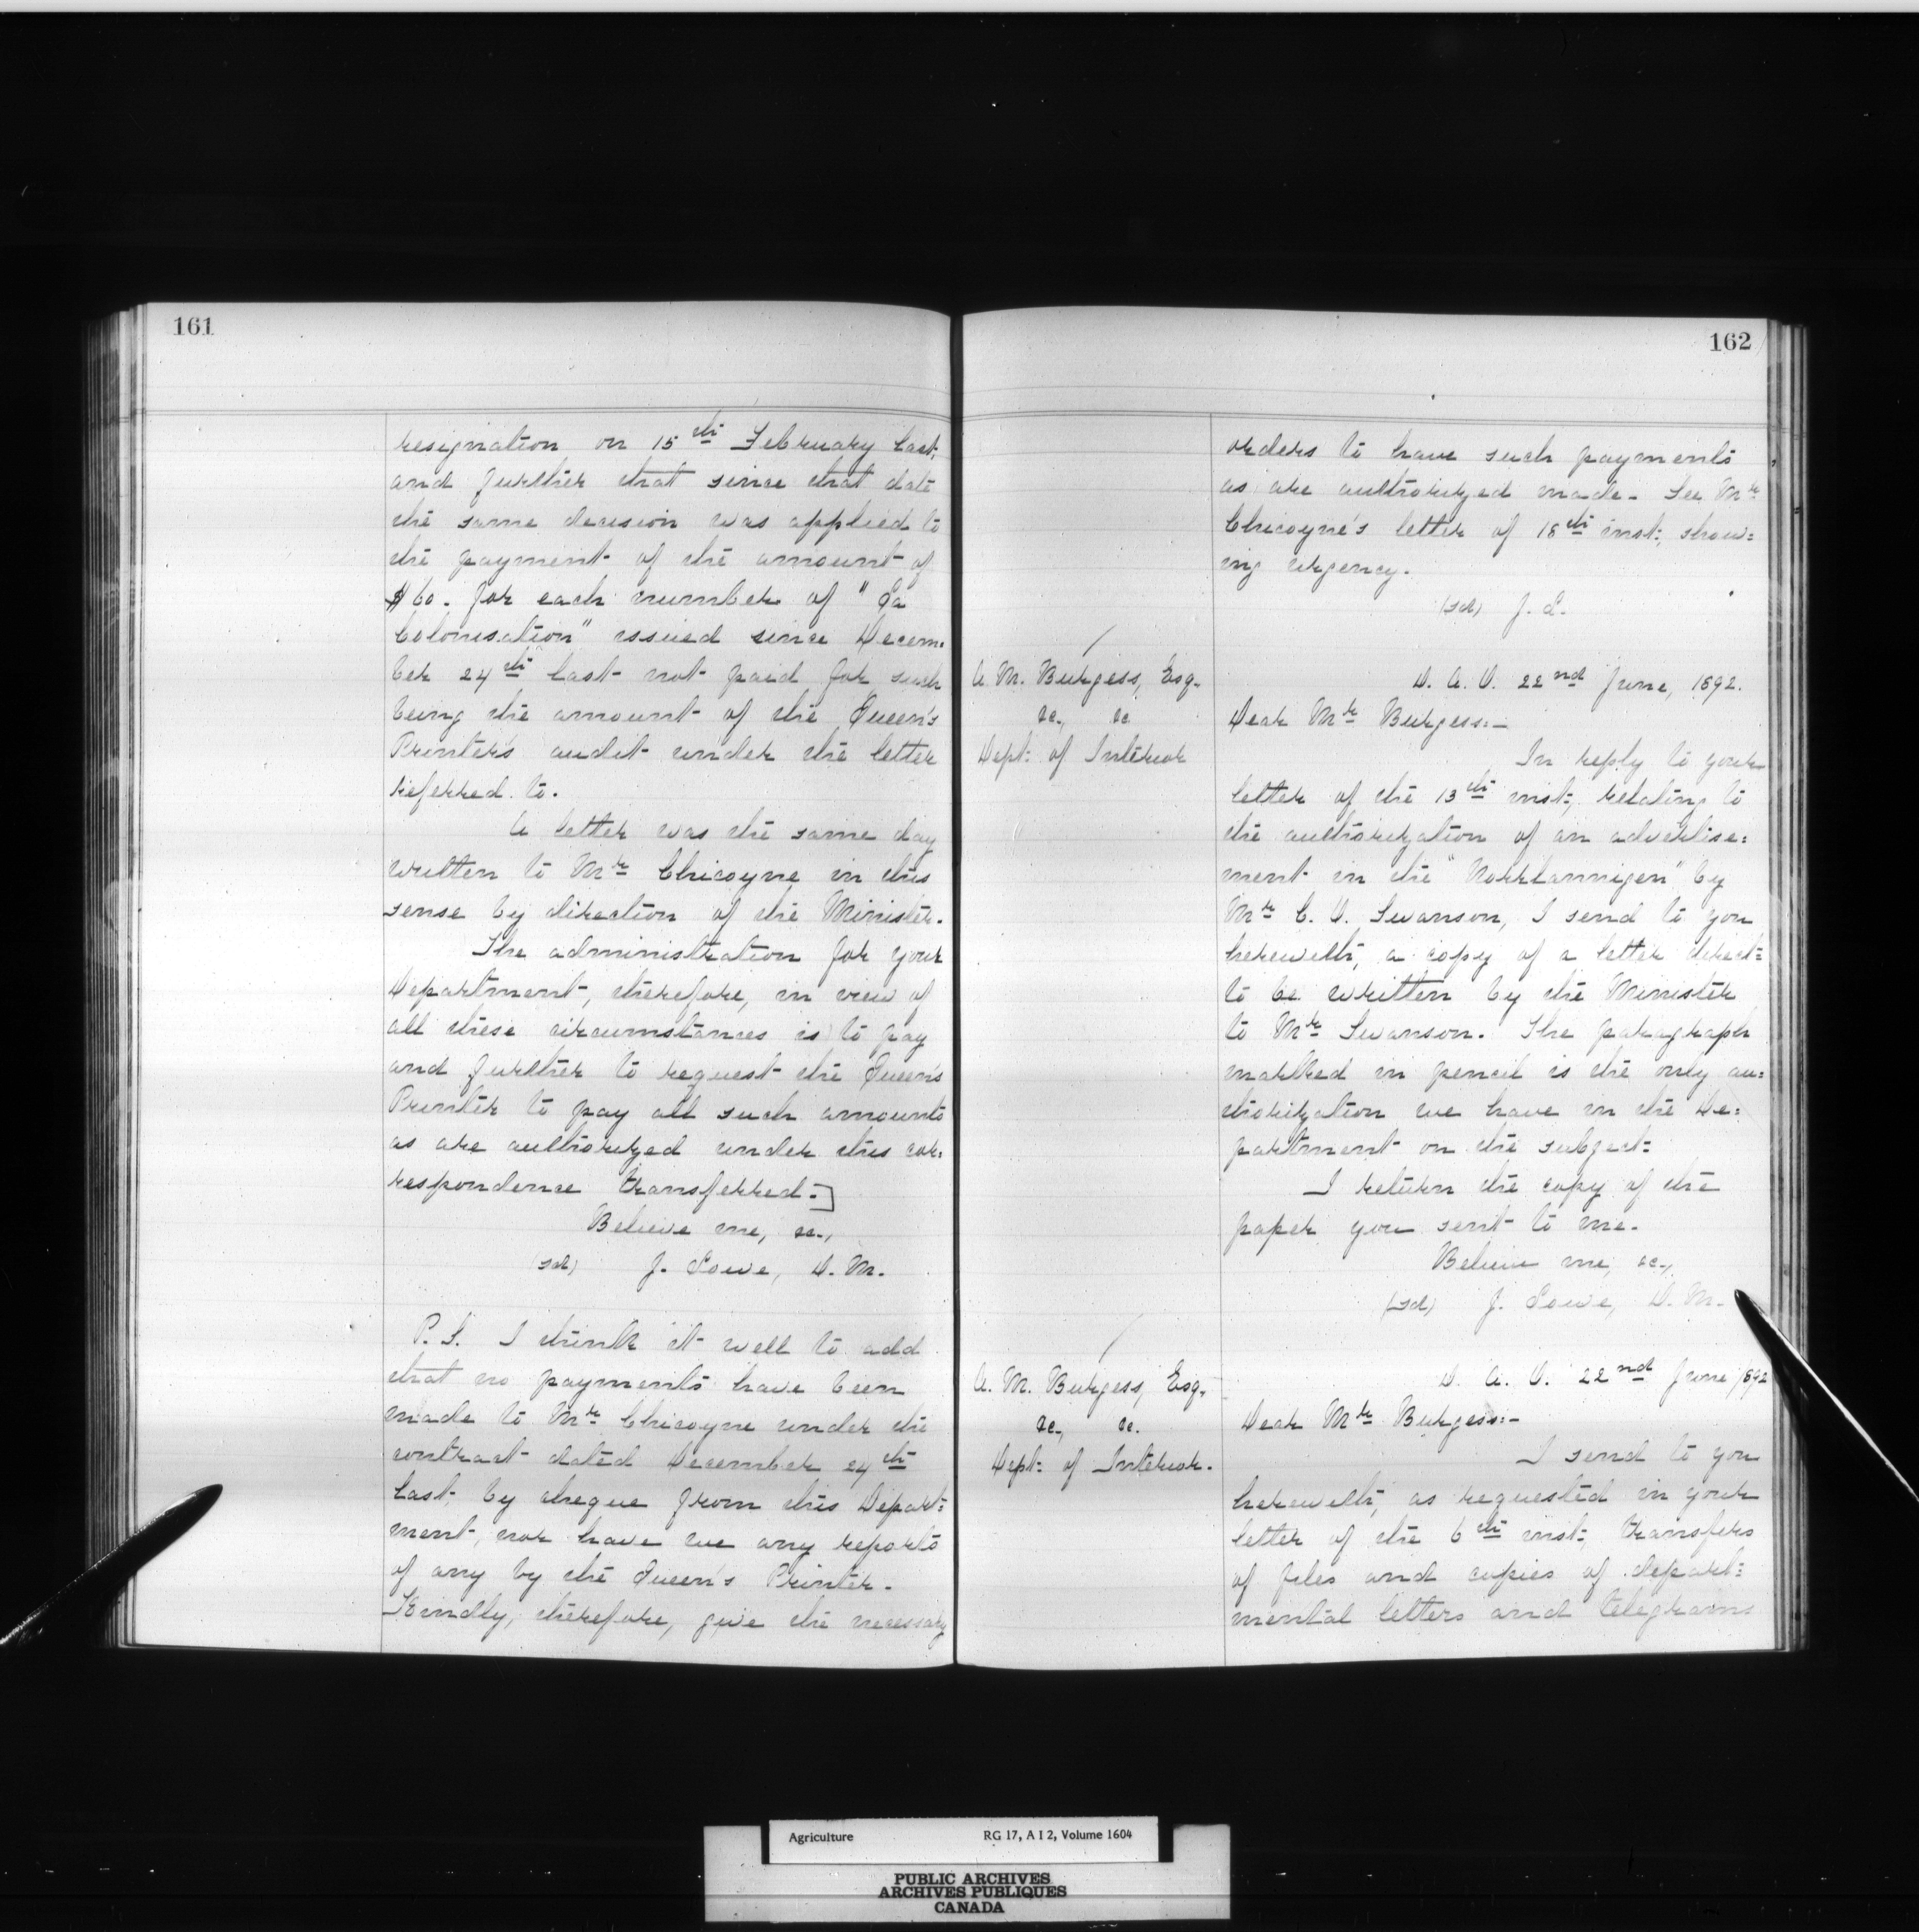 161
resignation on 15th February last,
and further that since that date
the same decision was applied to
the payment of the amount of
$60. for each number of "La
Colonisation" issued since Decem-
ber 24th last not paid for such
being the amount of the Queen's
Printer's audit under the letter
referred to.
A letter was the same day
written to Mr Chicoyne in this
sense by direction of the Minister.
The administration for your
Department, therefore, in view of
all these circumstances is to pay
and further to request the Queen's
Printer to pay all such amounts
as are authorized under this cor:
respondence transferred.]
Believe me, &c.,
(sd) J. Lowe, D. M.
P. S. I think it well to add
that no payments have been
made to Mr Chicoyne under the
contract dated December 24th
last, by cheque from this Depart:
ment, nor have we any reports
of any by the Queen's Printer.
Kindly, therefore, give the necessary
162
orders to have such payments
as are authorized made. See Mr
Chicoyne's letter of 18th inst:, show:
ing urgency.
(sd) J. L.
A. M. Burgess, Esq.
&c., &c
Dept: of Interior
D. A. O. 22nd June, 1892.
Dear Mr Burgess:-
In reply to your
letter of the 13th inst:, relating to
the authorization of an advertise:
ment in the "Norrlanningen" by
Mr C. O. Swanson, I send to you
herewith, a copy of a letter direct:
to be written by the Minister
to Mr Swanson. The paragraph
marked in pencil is the only au:
thorization we have in the De:
partment on the subject:
I return the copy of the
paper you sent to me.
Believe me, &c.,
(sd) J. Lowe, D. M.
A. M. Burgess, Esq.
&c., &c.
Dept: of Interior.
D. A. O. 22nd June 1892
Dear Mr Burgess:-
I send to you
herewith, as requested in your
letter of the 6th inst:, transfers
of files and copies of depart:
mental letters and telegrams
Agriculture RG 17, A I 2, Volume 1604
PUBLIC ARCHIVES
ARCHIVES PUBLIQUES
CANADA